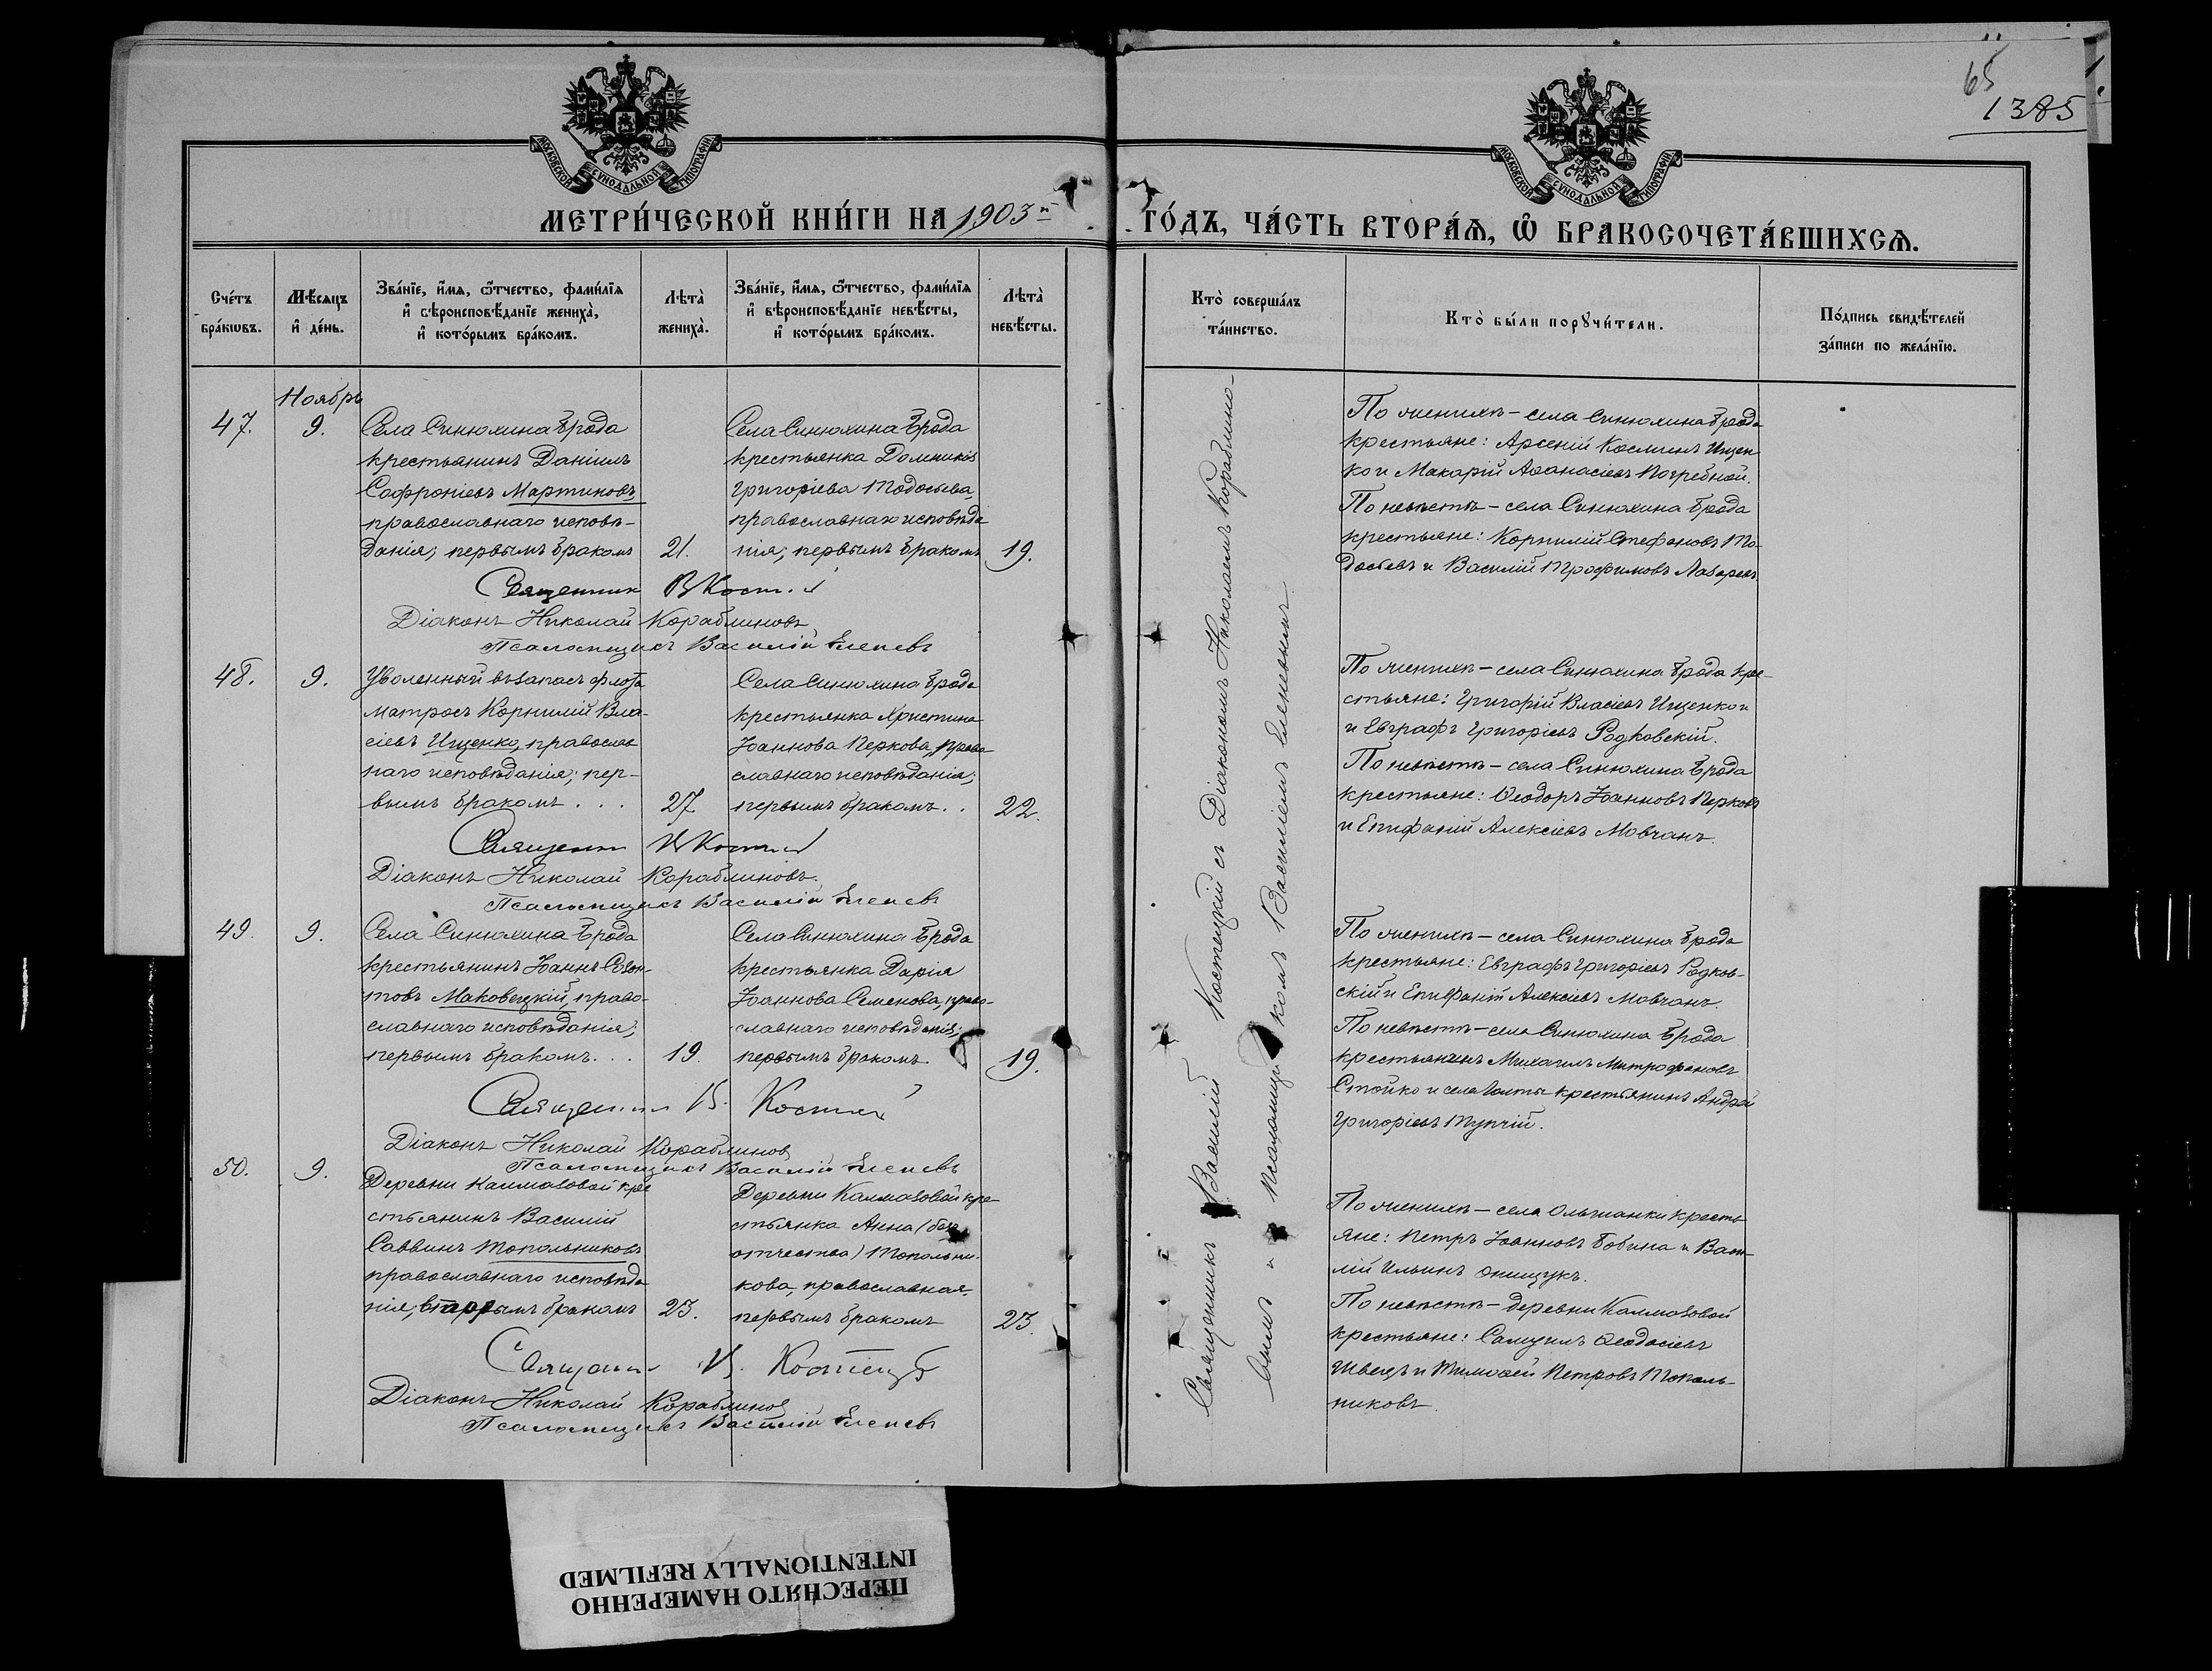 65
1385
МОСКОВСКОЙ СѴНОДАЛЬНОЙ ТИПОГРАФІИ
МОСКОВСКОЙ СѴНОДАЛЬНОЙ ТИПОГРАФІИ
МЕТРИ́ЧЕСКОЙ КНИ́ГИ НА 1903й ГО́ДЪ, ЧА́СТЬ ВТОРА́Ѧ, Ѽ БРАКОСОЧЕТА́ВШИХСѦ.
Сче́тъ
бра́кѡвъ.
Мѣ́сѧцъ
и҆ де́нь.
Зва́нїе, и҆́мѧ, ѻ҆́тчество, фами́лїѧ
и҆ вѣроисповѣ́данїе жениха̀,
и҆ кото́рымъ бра́комъ.
Лѣта̀
жениха̀.
Зва́нїе, и҆́мѧ, ѻ҆́тчество, фами́лїѧ
и҆ вѣроисповѣ́данїе невѣ́сты,
и҆ кото́рымъ бра́комъ.
Лѣта̀
невѣ́сты.
Кто̀ соверша́лъ
та́инство.
Кто̀ бы́ли порꙋчи́тели.
По́дпись свидѣ́телей
за́писи по жела́нїю.
Ноябрь
47.
9.
Села Синюхина Брода
крестьянинъ Даніилъ
Софроніевъ Мартиновъ,
православнаго исповѣ-
данія; первымъ бракомъ
21.
Села Синюхина Брода
крестьянка Домникія
Григоріева Тодосьева,
православнаго исповѣда
нія; первымъ бракомъ
19.
По женихѣ – села Синюхина Брода
крестьяне: Арсеній Косминъ Ищен
ко и Макарій Аѳанасіевъ Погребной.
По невѣстѣ – села Синюхина Брода
крестьяне: Корнилій Стефановъ То-
досьевъ и Василій Трофимовъ Лазаревъ.
Священник В Кост
Діаконъ Николай Кораблиновъ
Псаломщикъ Василій Еленевъ
48.
9.
Уволенный въ запасъ флота
матросъ Корнилій Вла-
сіевъ Ищенко, православ
наго исповѣданія; пер-
вымъ бракомъ . . .
27
Села Синюхина Брода
крестьянка Христина
Іоаннова Перкова, право
славнаго исповѣданія;
первымъ бракомъ . .
22.
По женихѣ – села Синюхина Брода кре-
стьяне: Григорій Власіевъ Ищенко и
и Евграфъ Григоріевъ Радковскій.
По невѣстѣ – села Синюхина Брода
крестьяне: Ѳеодоръ Іоанновъ Перковъ
и Епифаній Алексіевъ Мовчанъ.
Священ В Кост
Діаконъ Николай Кораблиновъ.
Псаломщикъ Василій Еленевъ
49.
9.
Села Синюхина Брода
крестьянинъ Іоаннъ Созон-
товъ Маковецкій, право-
славнаго исповѣданія;
первымъ бракомъ . . .
19.
Села Синюхина Брода
крестьянка Дарія
Іоаннова Семенова, право-
славнаго исповѣданія;
первымъ бракомъ
19.
По женихѣ – села Синюхина Брода
крестьяне: Евграфъ Григоріевъ Радков-
скій и Епифаній Алексіевъ Мовчанъ.
По невѣстѣ – села Синюхина Брода
крестьянинъ Михаилъ Митрофановъ
Стойко и села Голты крестьянинъ Андрей
Григоріевъ Тупчій.
Священ В. Кост
Діаконъ Николай Кораблиновъ
Псаломщикъ Василій Еленевъ
50.
9.
Деревни Калмазовой кре
стьянинъ Василій
Саввинъ Топольниковъ
православнаго исповѣда
нія; вторымъ бракомъ
23.
Деревни Калмазовой кре-
стьянка Анна (безъ
отчества) Топольни-
кова, православная,
первымъ бракомъ
23.
По женихѣ – села Ольшанки кресть
яне: Петръ Іоанновъ Бобина и Васи-
лій Ильинъ Онищукъ.
По невѣстѣ – деревни Калмазовой
крестьяне: Самуилъ Ѳеодосіевъ
Швецъ и Тимоѳей Петровъ Тополь-
никовъ.
Священ В. Костец
Діаконъ Николай Кораблиновъ
Псаломщикъ Василій Еленевъ
Священникъ Василій Костецкій съ Діакономъ Николаемъ Кораблино-
вымъ и Псаломщикомъ Василіемъ Еленевымъ
ПЕРЕСНЯТО НАМЕРЕННО
INTENTIONALLY REFILMED